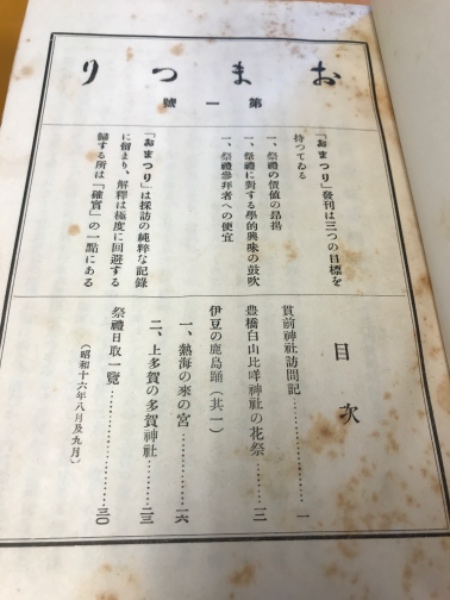 おまつり
第一號
「おまつり」發刊は三つの目標を
持つてゐる
一、祭禮の價値の昂揚
一、祭禮に對する學的興味の鼓吹
一、祭禮參拜者への便宜
「おまつり」は採訪の純粹な記錄
に留まり、解釋は極度に回避する
歸する所は「確實」の一點にある
目次
貫前神社訪問記……………一
豊橋白山比咩神社の花祭……一二
伊豆の鹿島踊(其一)
一、熱海の來の宮……………一六
二、上多賀の多賀神社………二三
祭禮日取一覽……………三〇
(昭和十六年八月及九月)